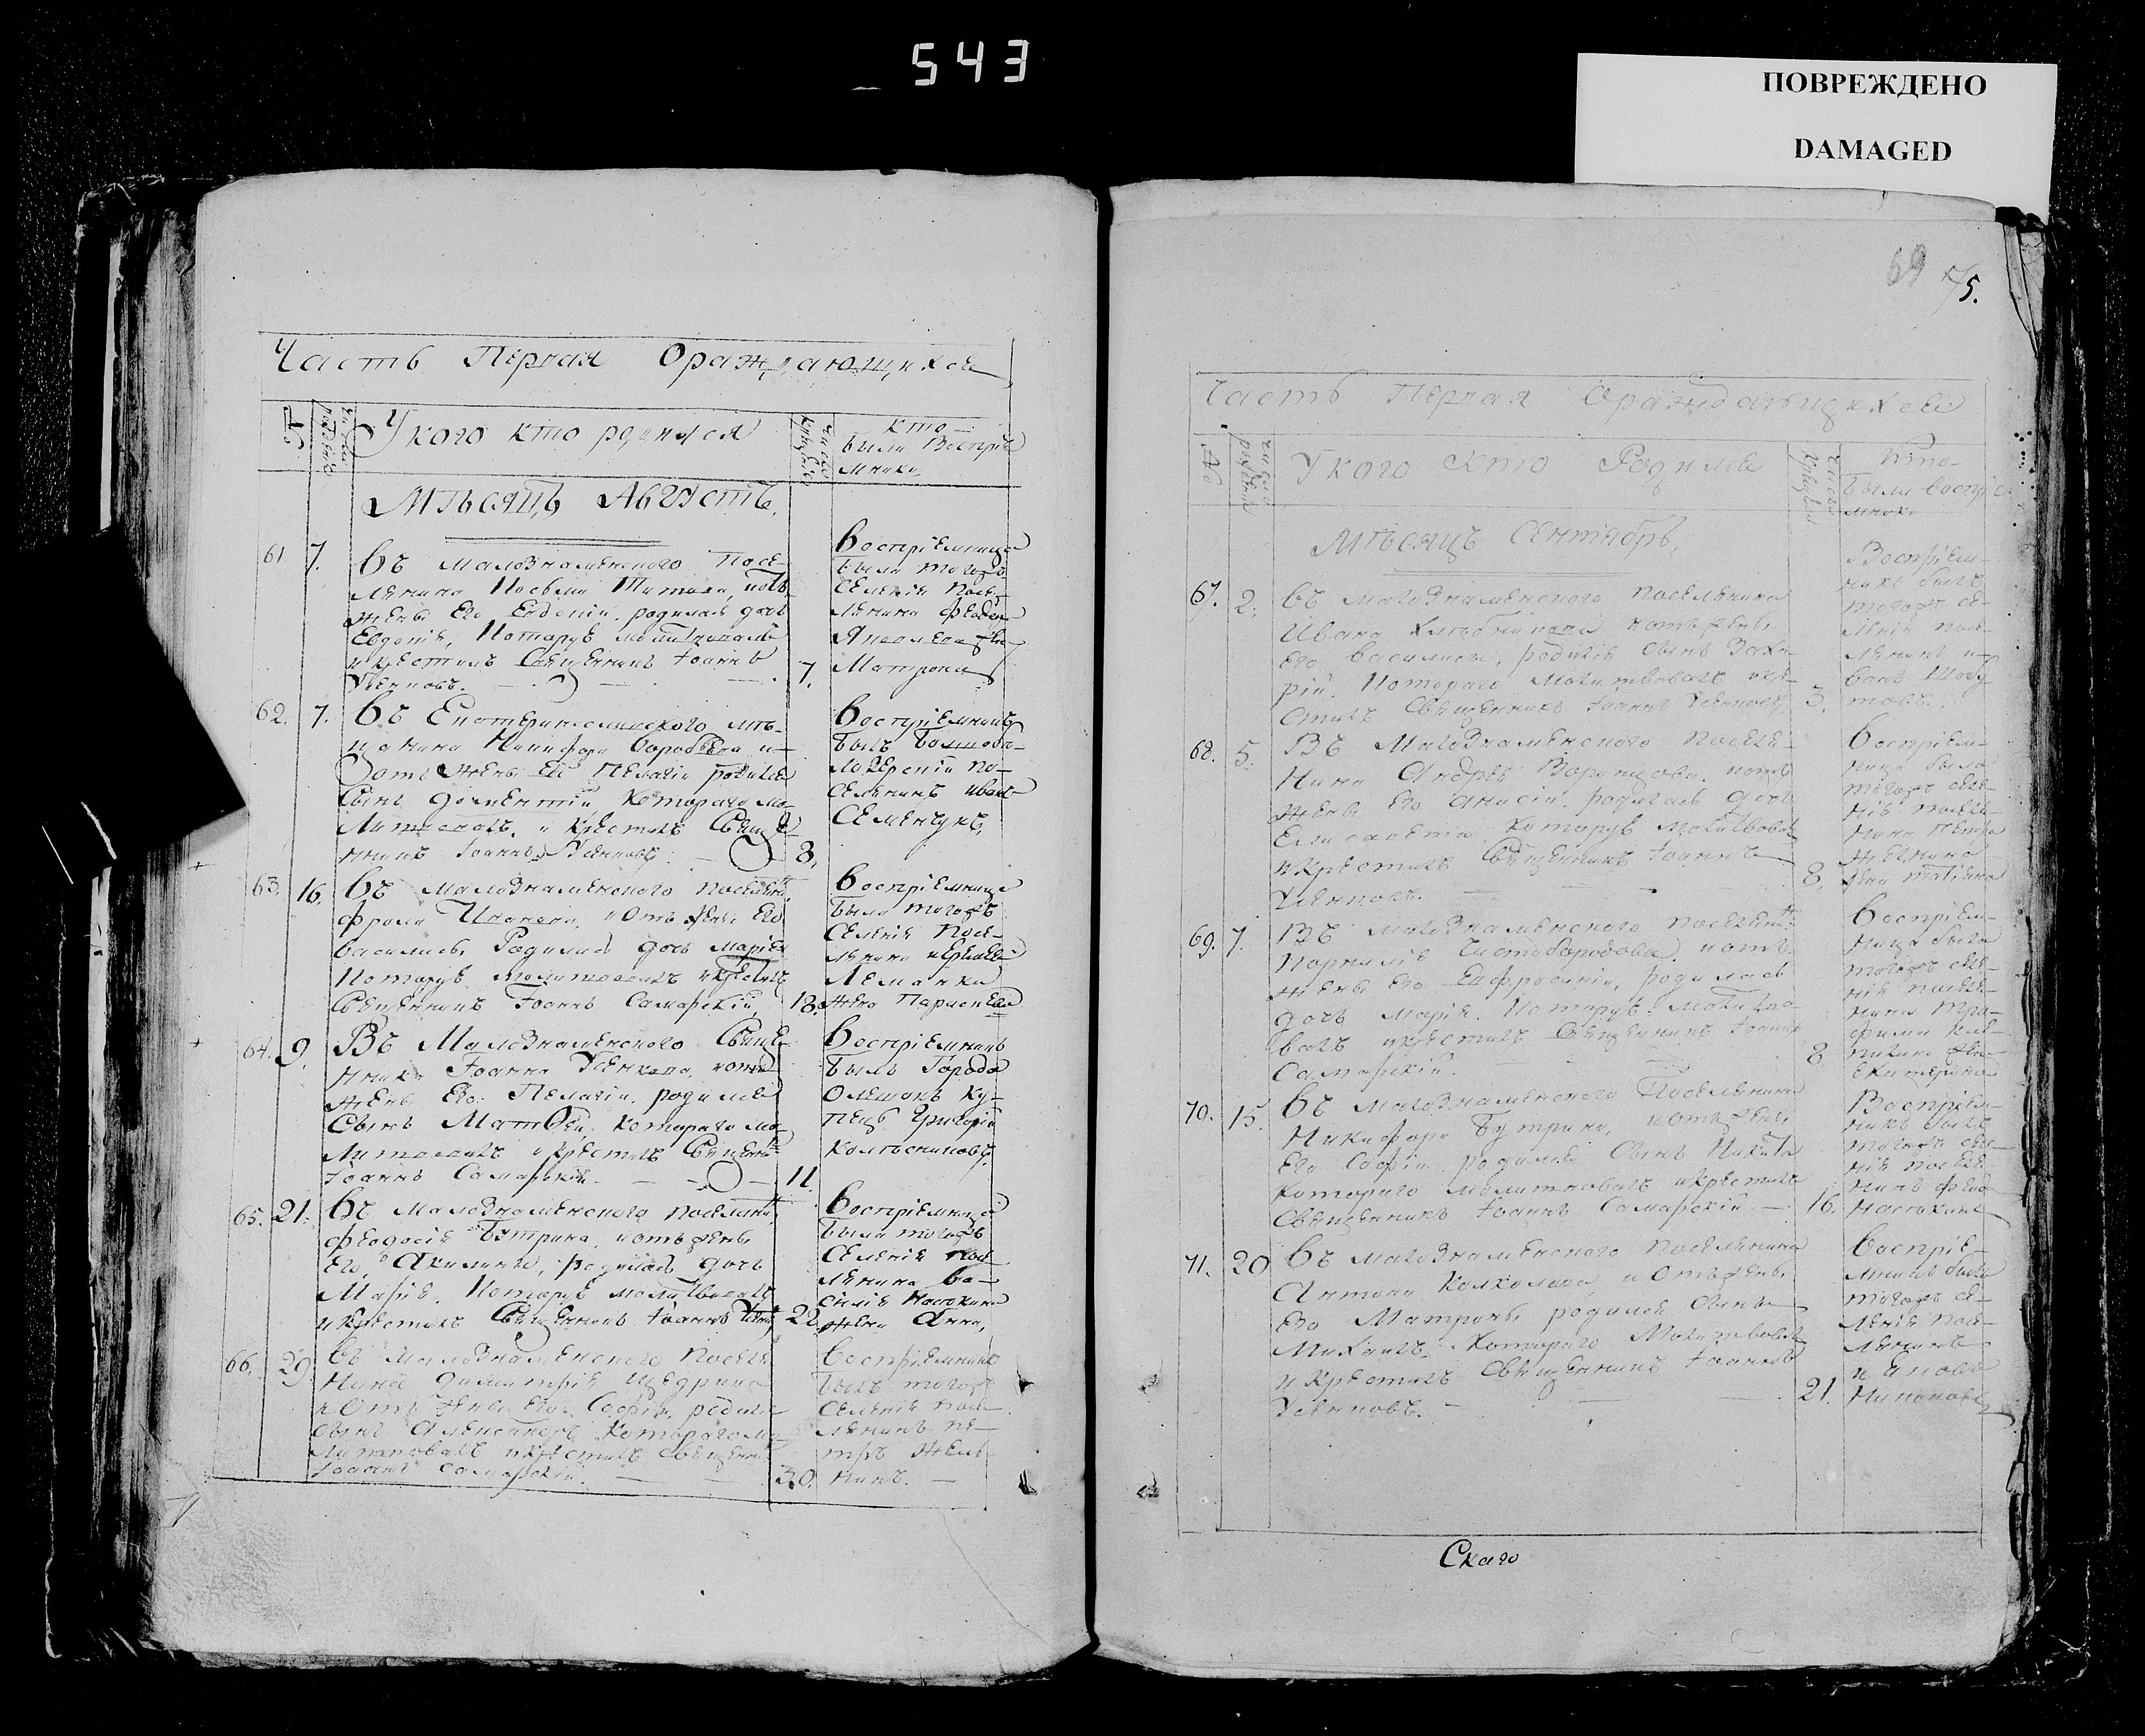 543
ПОВРЕЖДЕНО
DAMAGED
Часть Первая О раждающихся
№
Укого кто родился
кто
были Воспріе
мники
Мѣсяцъ Августъ
61. 7. Въ Малознаменского Посе-
лянина
жены Его Евдокіи, родилась дочь
Евдокія, Которую молитвовалъ
и крестилъ Священникъ Іоаннъ
Усенковъ. 7.
Воспріемница
была тогожъ
Селенія Посе-
лянина Федора
жена
Матрона
62. 7. Въ мѣ-
щанина Никифора и
отъ Жены Его Пелагіи родился
Сынъ Дометій Котораго мо-
литвовалъ и крестилъ Свяще
нникъ Іоаннъ Усенковъ 8.
Воспріемникъ
былъ
по-
Селянинъ Иванъ
Семенчукъ,
63. 16. Въ Малознаменского поселяни
Фрола отъ жены Его
Василисы Родилась дочь Марія
Которую Молитвовалъ и крестилъ
Священникъ Іоаннъ Самарскій 18.
Воспріемница
была тогожъ
Селенія Посе-
лянина
жена Параскева
64. 9. Въ Малознаменского Свяще
нника Іоанна Усенкова, и отъ
жены Его Пелагіи родился
Сынъ Матѳей котораго мо-
литвовалъ и крестилъ Священ
Іоаннъ Самарскій 11.
Воспріемникъ
былъ Города
Олешокъ Ку-
пецъ Григорій
Колѣсниковъ
65. 21. Въ Малознаменского поселянин
Феодосія Бутрина, и отъ жены
Его Акилины, родилась дочь
Марія, Которую молитвовалъ
и крестилъ Священникъ Іоаннъ 22.
Воспріемница
была тогожъ
Селенія посе
лянина Ва-
силія Насокина
жена Анна,
66. 29. Въ Малознаменского поселя
нина Димитрія Щедрина
и Отъ жены Его Софіи, родился
сынъ Александръ Котораго мо-
литвовалъ и крестилъ священ
Іоаннъ Самарскій 30.
Воспріемникъ
былъ тогожъ
Селенія посе
лянинъ Пе-
тръ
69
75.
Часть Первая О раждающихся
№
Укого Кто Родился
Кто
были воспріе
мники
Мѣсяцъ Сентябрь,
67. 2. Въ Малознаменского поселянина
Ивана Хлѣбникова и отъ жены
его Василисы, родился сынъ Заха-
рій. Котораго Молитвовалъ и кре-
стилъ Священникъ Іоаннъ Усенковъ 3.
Воспріем-
никъ былъ
тогожъ се-
ленія посе-
лянинъ И-
ванъ
68. 5. Въ Малознаменского поселя-
нина Андрея Воронцова, и отъ
жены Его Анисіи, родилась дочь
Елисавета Которую молитвовалъ
и крестилъ Священникъ Іоаннъ
Усенковъ. 8.
Воспріем-
ница была
тогожъ селе-
нія поселя-
нина Петра
жена
69. 7. Въ Малознаменского поселянин
Корнилія Чистобородова, и отъ
жены Его Евфросиніи, родилась
дочь Марія. Которую молитво-
валъ и крестилъ Священникъ Іоаннъ
Самарскій. 8.
Воспріем-
ница была
тогожъ селе-
нія поселя-
нина Три-
фима
жена
Екатерина
70. 15. Въ Малознаменского Поселянина
Никифора Бутрина, и отъ жены
Его Софіи родился Сынъ Никита
Котораго Молитвовалъ и крестилъ
Священникъ Іоаннъ Самарскій 16.
Воспріем-
никъ былъ
тогожъ селе-
нія поселя-
нинъ Федо
Насокинъ
71. 20 Въ Малознаменского поселянина
Антона и отъ жены
Его Матроны родился Сынъ
Михаилъ, Котораго Молитвовалъ
и Крестилъ Священникъ Іоаннъ
Усенковъ. 21.
Воспріе-
мникъ былъ
тогожъ се-
ленія посе-
лянинъ
Скаго